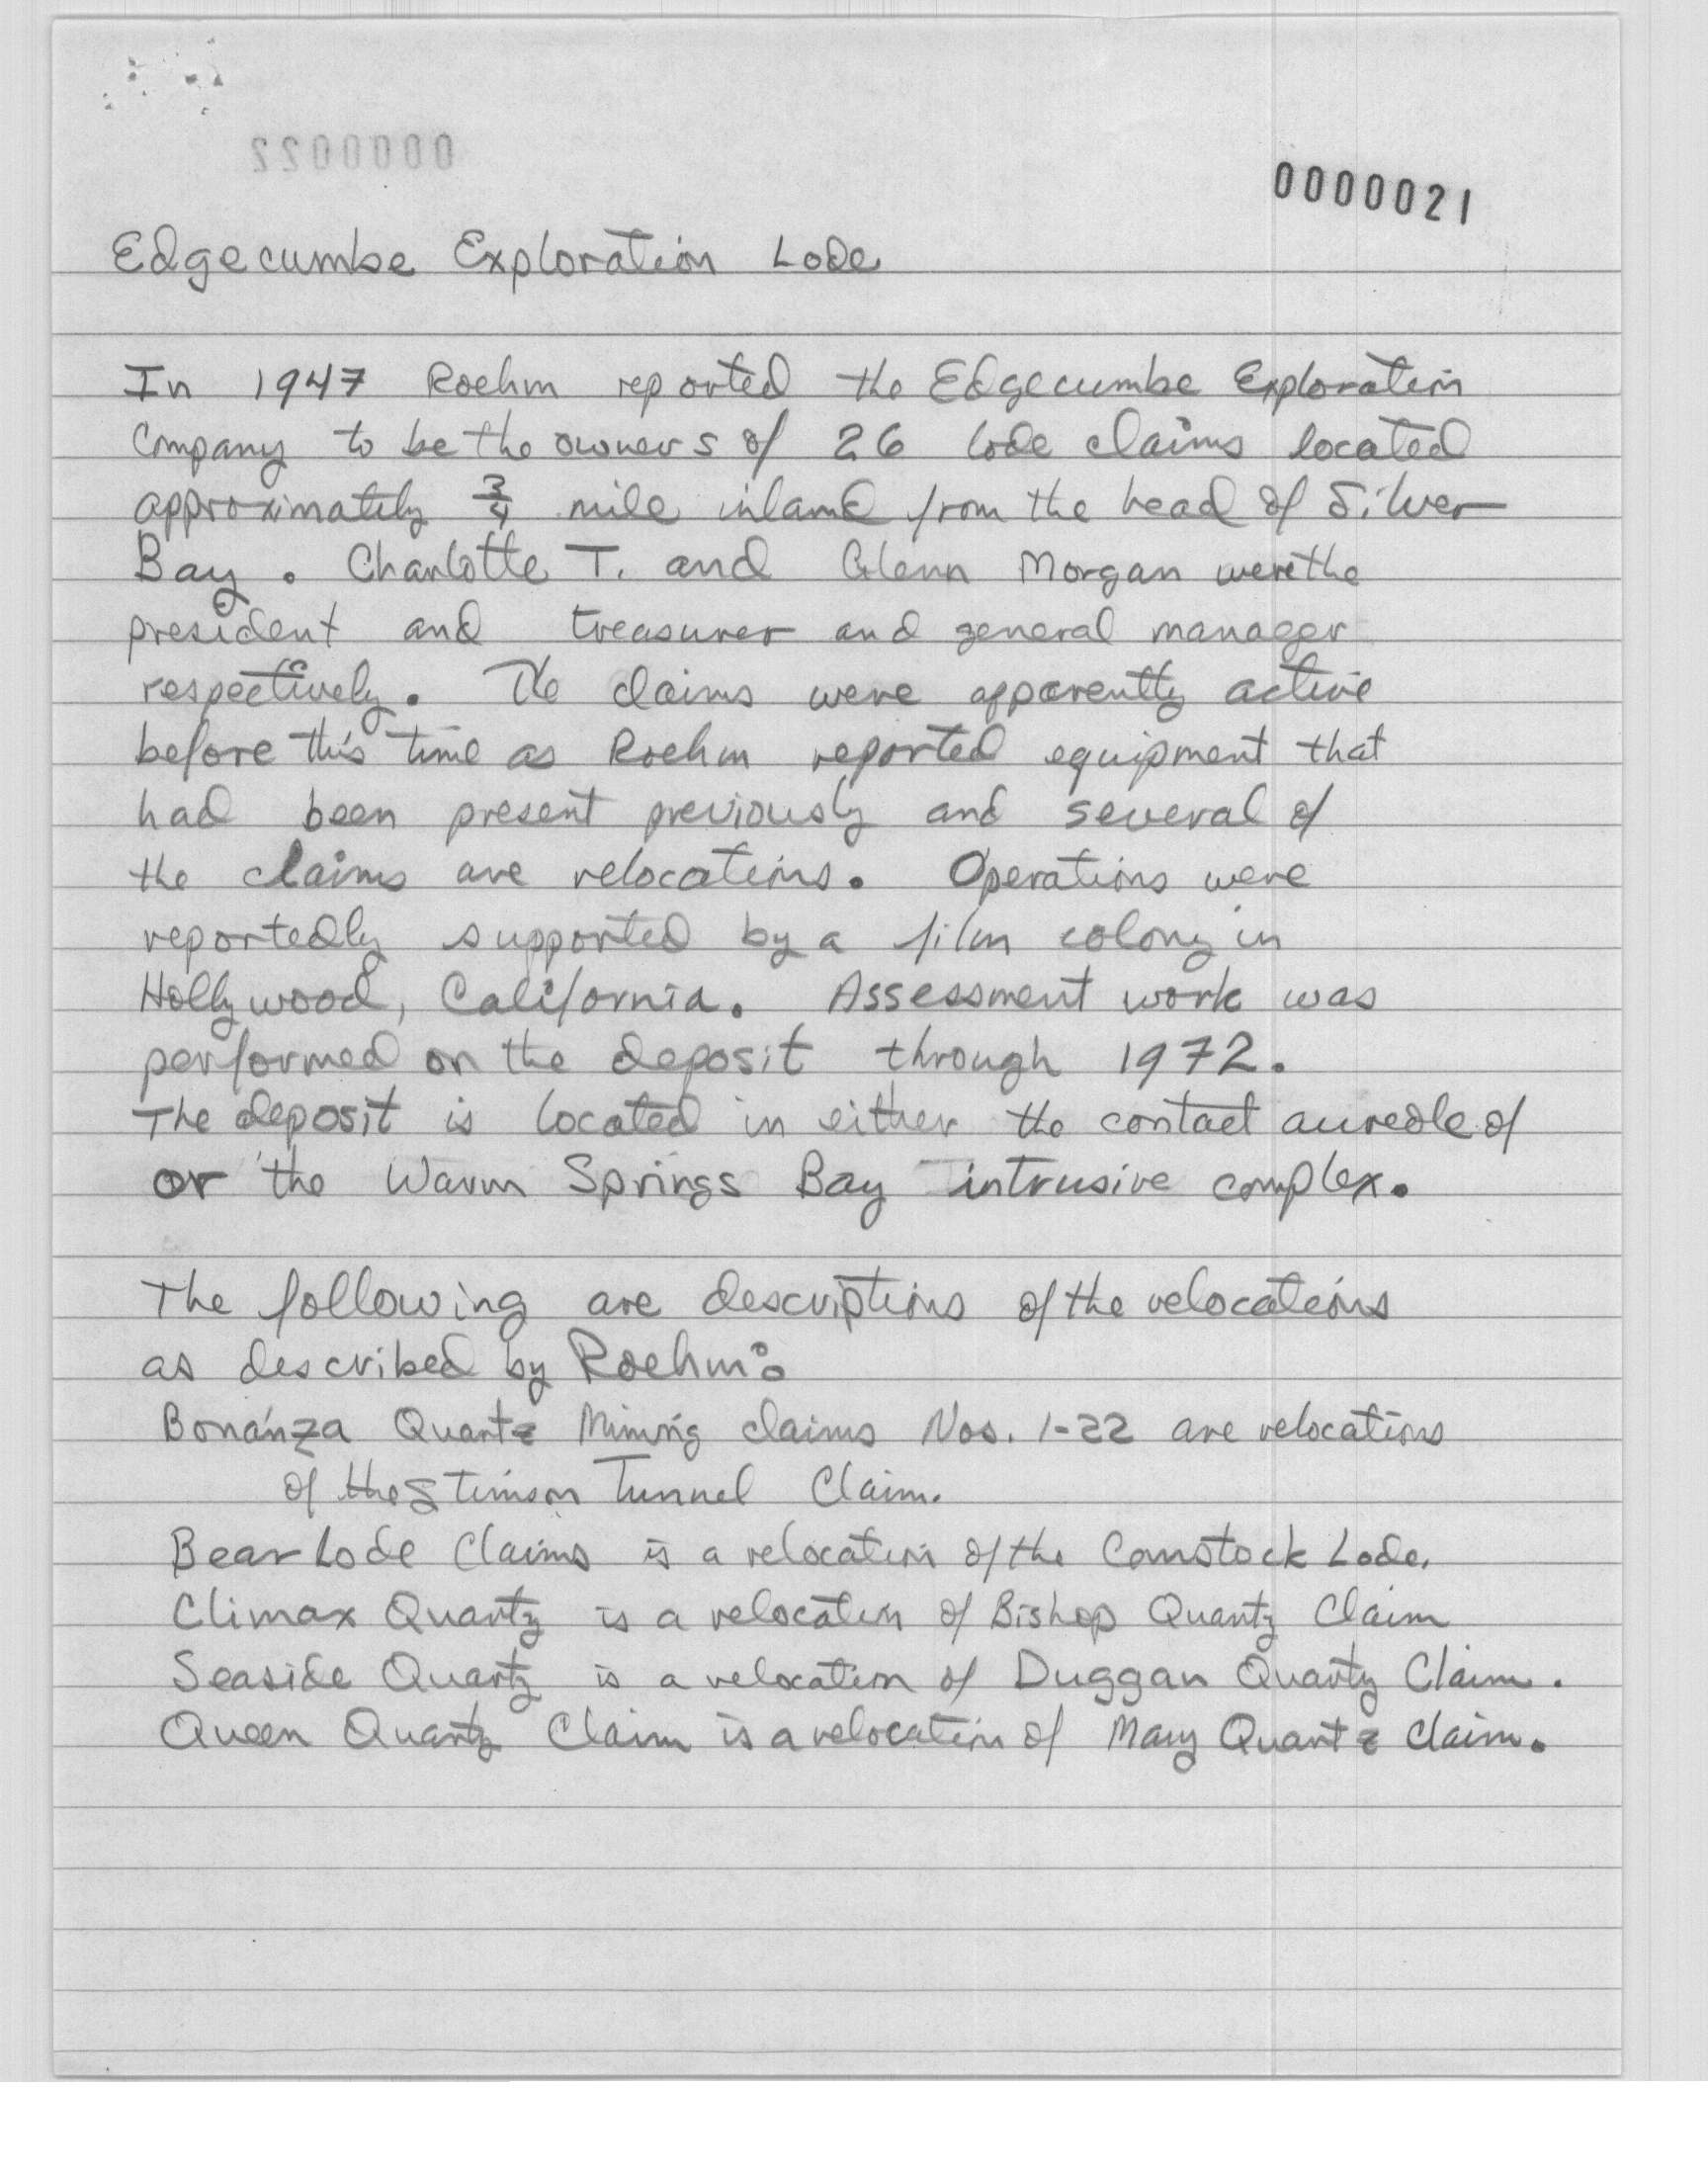 0000022
0000021
Edgecumbe Exploration Lode
In 1947 Roehm reported the Edgecumbe Exploration
Company to be the owners of 26 lode claims located
approximately 3/4 mile inland from the head of Silver
Bay. Charlotte T. and Glenn Morgan were the
president and treasurer and general manager
respectively. The claims were apparently active
before this time as Roehm reported equipment that
had been present previously and several of
the claims are relocations. Operations were
reportedly supported by a film colony in
Hollywood, California. Assessment work was
performed on the deposit through 1972.
The deposit is located in either the contact aureole of
or the Warm Springs Bay intrusive complex.
The following are descriptions of the relocations
as described by Roehm:
Bonanza Quartz Mining claims Nos. 1-22 are relocations
of the Stimson Tunnel Claim.
Bear Lode Claims is a relocation of the Comstock Lode.
Climax Quartz is a relocation of Bishop Quartz Claim
Seaside Quartz is a relocation of Duggan Quartz Claim.
Queen Quartz Claim is a relocation of Mary Quartz Claim.